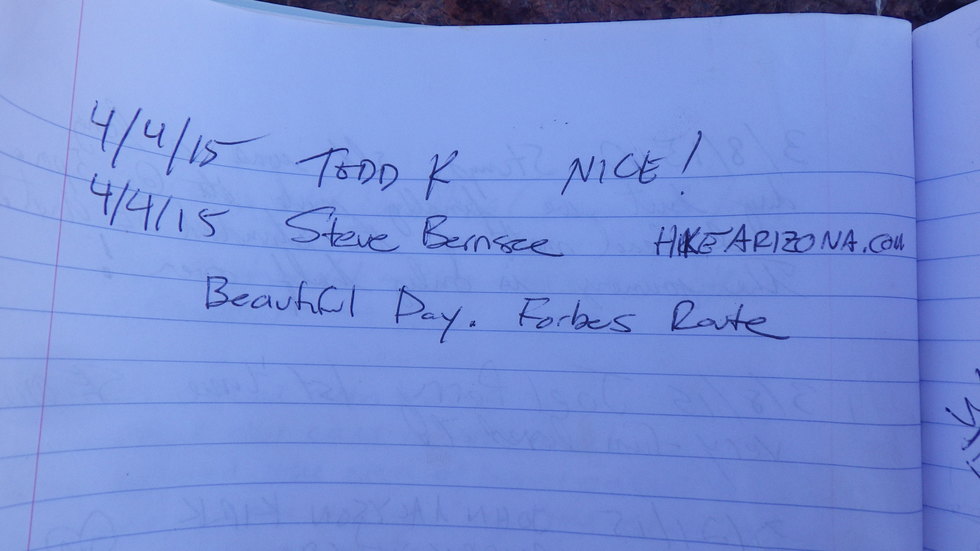 4/4/15 TODD K NICE!
4/4/15 Steve Bernsee HIKEARIZONA.COM
Beautiful Day. Forbes Route